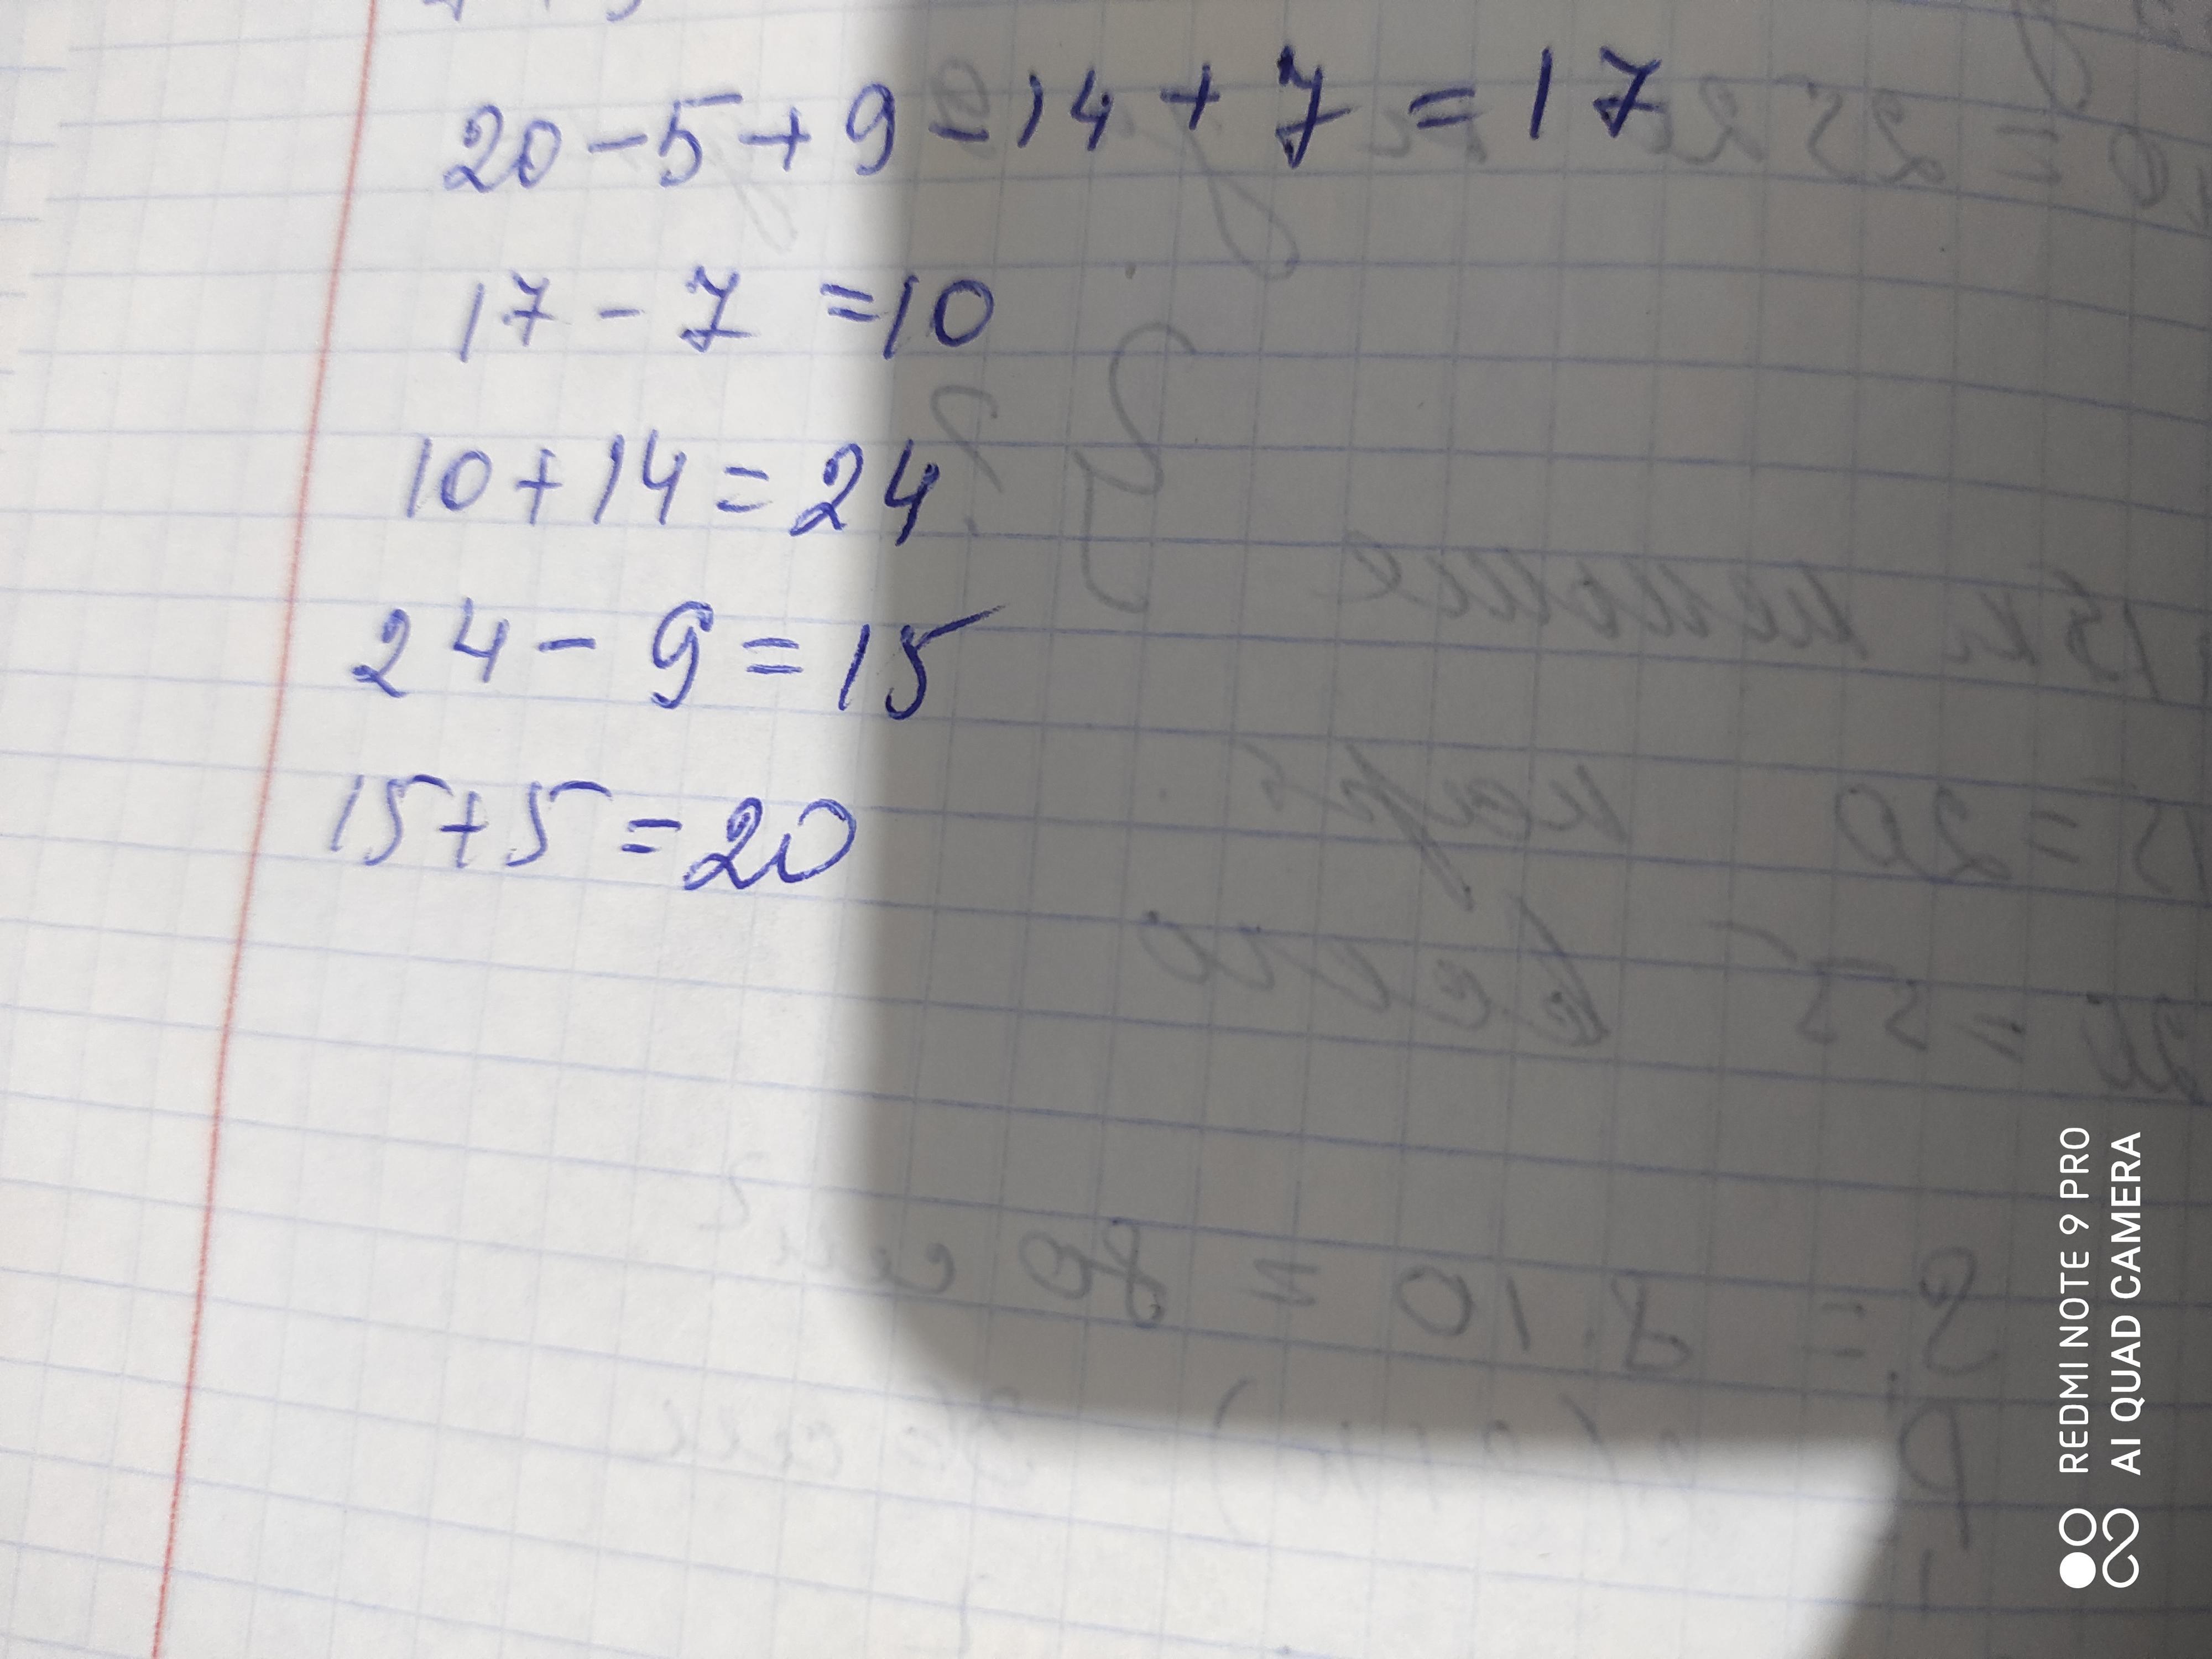 20 - 5 + 9 - 14 + 7 = 17
17 - 7 = 10
10 + 14 = 24
24 - 9 = 15
15 + 5 = 20
REDMI NOTE 9 PRO
AI QUAD CAMERA